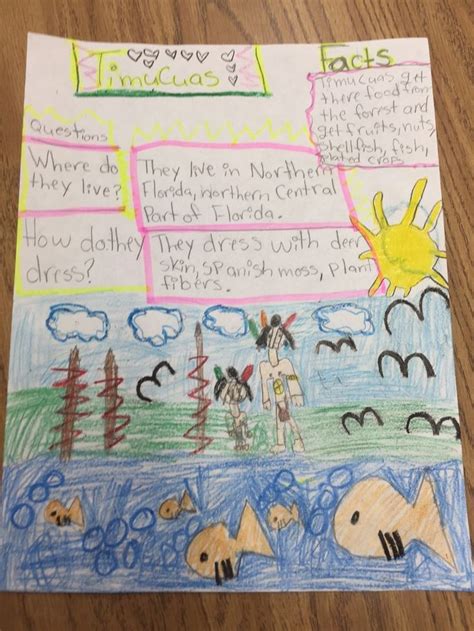 Timucuas
Facts
Timucuas get
there food from
the forest and
get fruits, nuts,
shellfish, fish,
planted crops.
Questions
Where do
they live?
They live in Northern
Florida, Northern Central
Part of Florida.
How do they
dress?
They dress with deer
skin, spanish moss, plant
fibers.